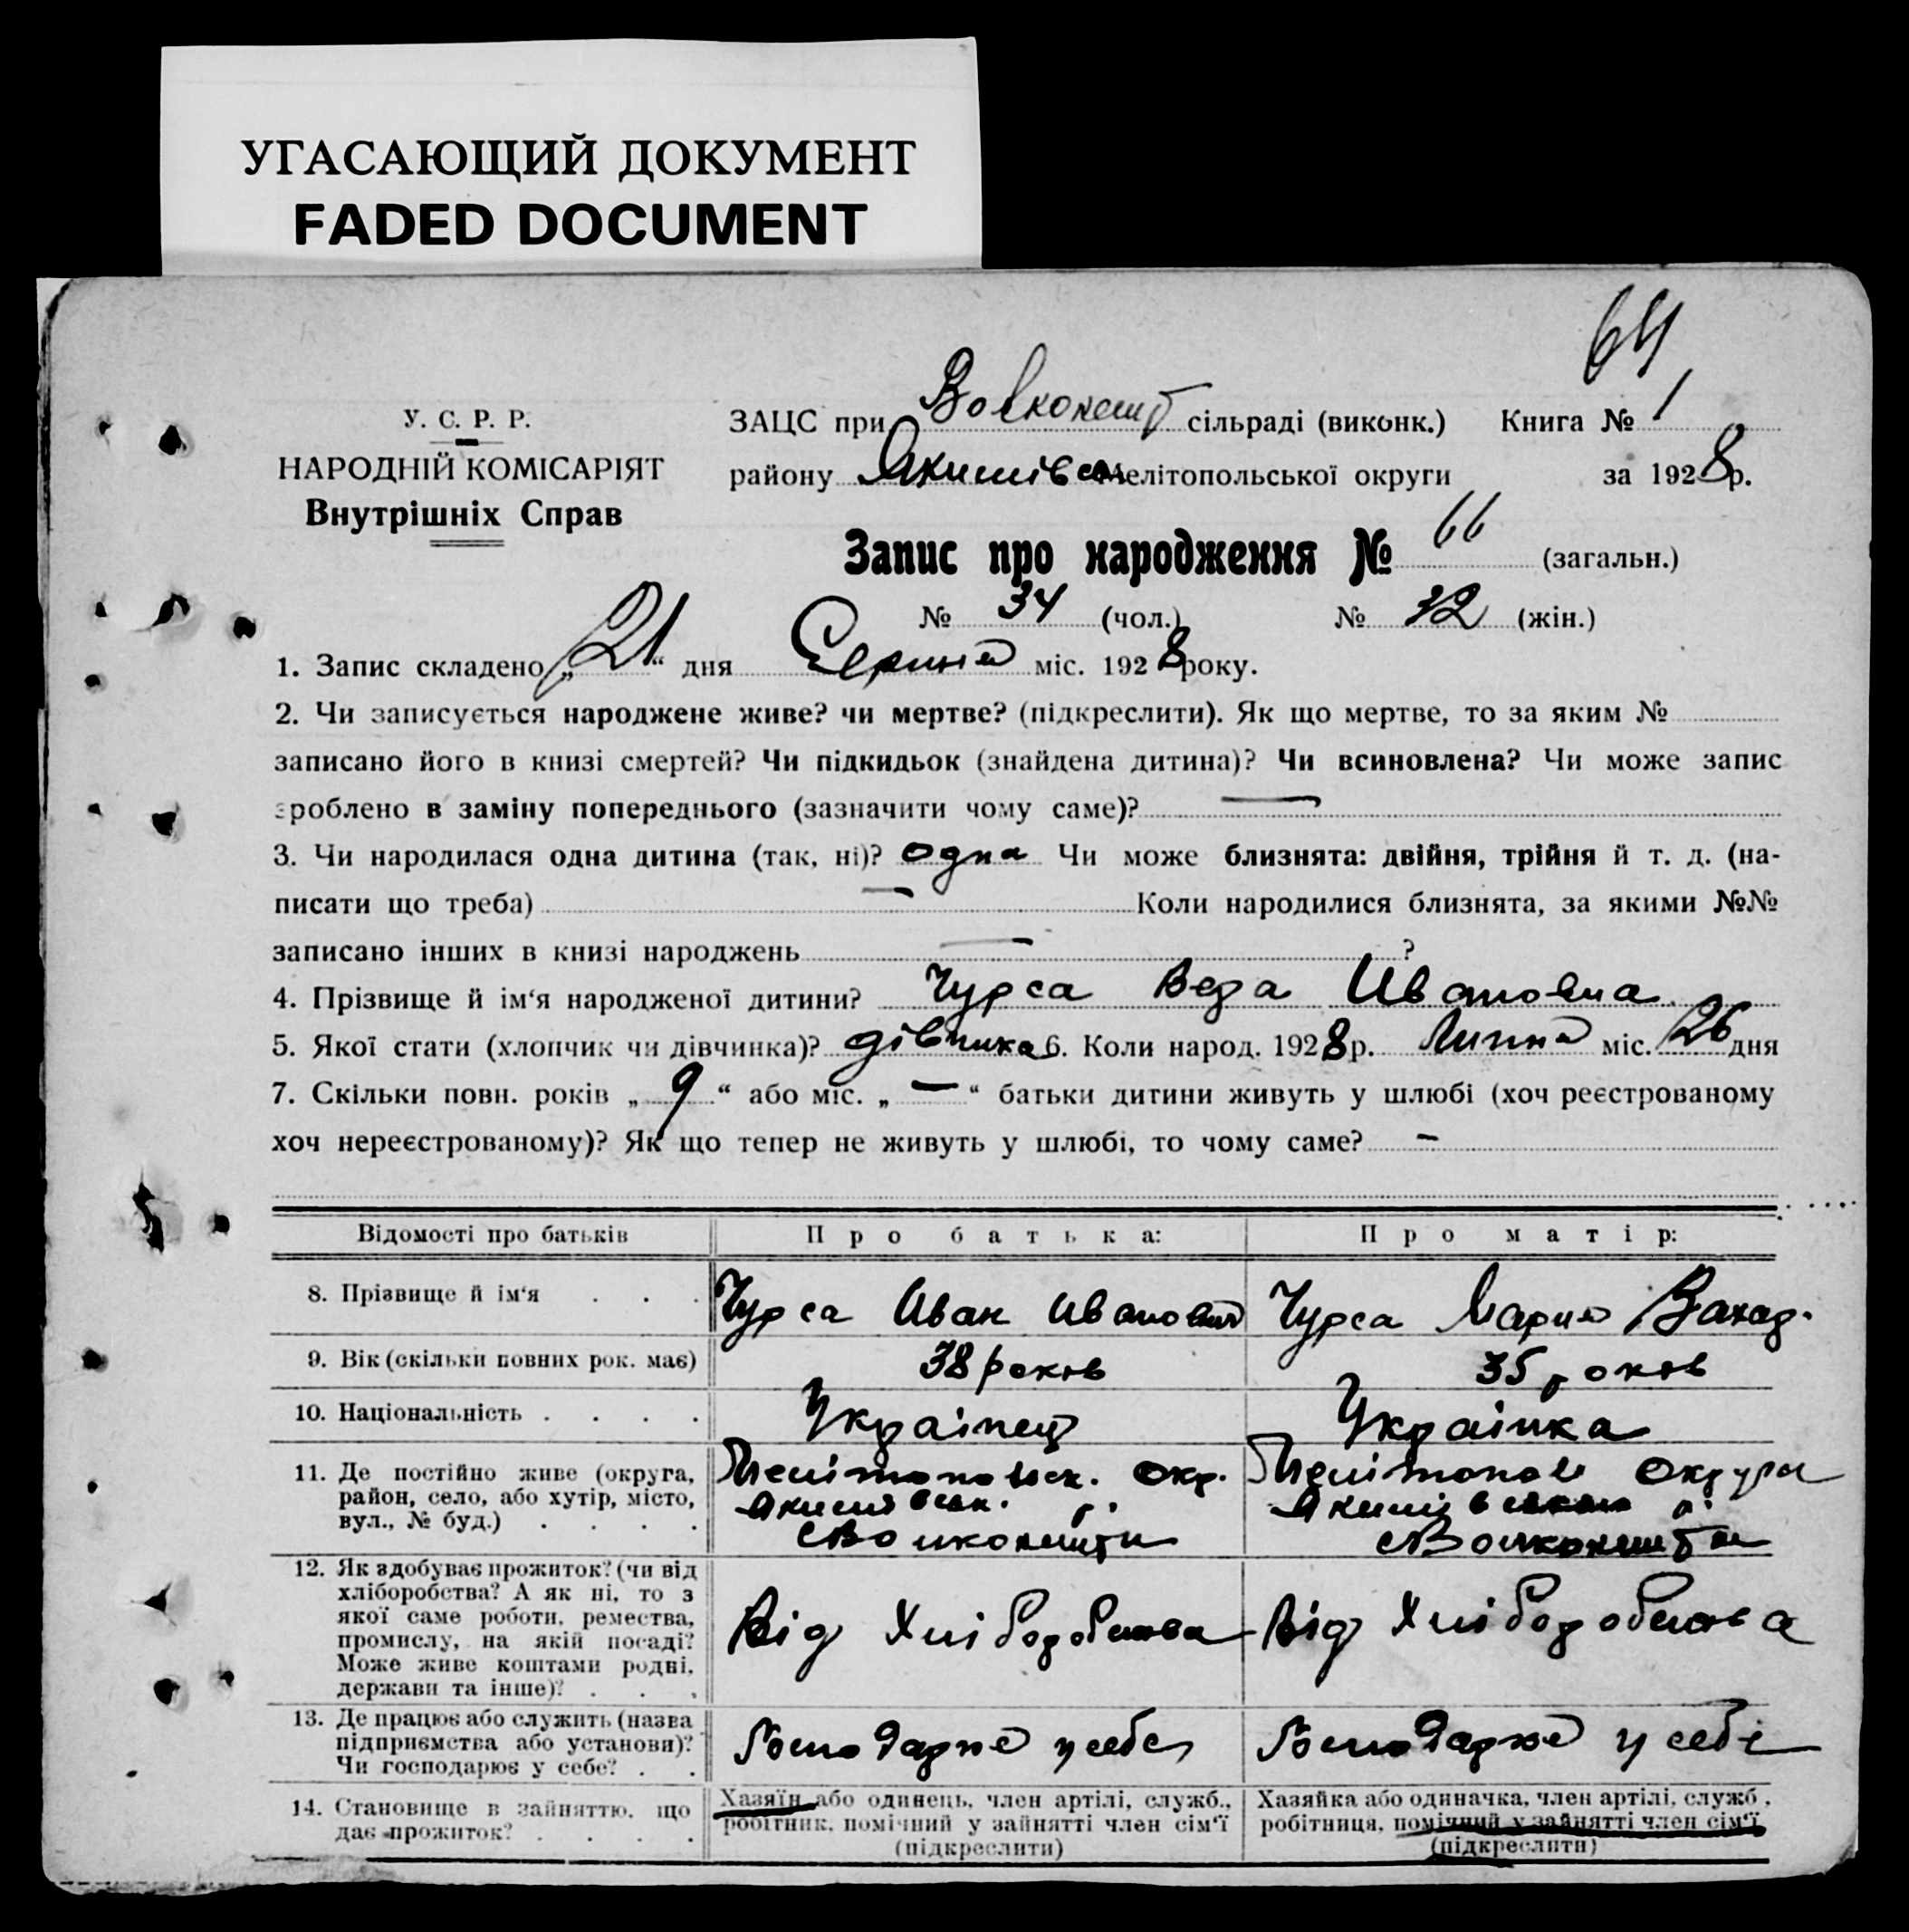 УГАСАЮЩИЙ ДОКУМЕНТ
FADED DOCUMENT
64
У. С. Р. Р.
НАРОДНІЙ КОМІСАРІЯТ
Внутрішніх Справ
ЗАЦС при Вовконешт сільраді (виконк.) Книга № 1
району Якимівськ Мелітопольської округи за 1928 р.
Запис про народження № 66 (загальн.)
№ 34 (чол.) № 32 (жін.)
1. Запис складено „21“ дня Серпня міс. 1928 року.
2. Чи записується народжене живе? чи мертве? (підкреслити). Як що мертве, то за яким №
записано його в книзі смертей? Чи підкидьок (знайдена дитина)? Чи всиновлена? Чи може запис
зроблено в заміну попереднього (зазначити чому саме)? —
3. Чи народилася одна дитина (так, ні)? одна Чи може близнята: двійня, трійня й т. д. (на-
писати що треба) — Коли народилися близнята, за якими №№
записано інших в книзі народжень — ?
4. Прізвище й ім‘я народженої дитини? Чурса Вера Ивановна
5. Якої стати (хлопчик чи дівчинка)? дівчинка 6. Коли народ. 1928 р. Липня міс. 26 дня
7. Скільки повн. років „9“ або міс. „—“ батьки дитини живуть у шлюбі (хоч реєстрованому
хоч нереєстрованому)? Як що тепер не живуть у шлюбі, то чому саме? —
Відомості про батьків Про батька: Про матір:
8. Прізвище й ім‘я . . . Чурса Иван Иванович Чурса Мария Захар.
9. Вік (скільки повних рок. має) 38 років 35 років
10. Національність . . . . Українец Українка
11. Де постійно живе (округа,
район, село, або хутір, місто,
вул., № буд.) . . . .
Мелітопольськ. окр.
Якимівськ. р.
Мелітополь округи
Якимівського р.
12. Як здобуває прожиток? (чи від
хліборобства? А як ні, то з
якої саме роботи, ремества,
промислу, на якій посаді?
Може живе коштами родні,
держави та інше)? . . .
Від Хліборобства
Від Хліборобства
13. Де працює або служить (назва
підприємства або установи)?
Чи господарює у себе? . .
Господарює у себе
Господарює у себе
14. Становище в зайняттю, що
дає прожиток? . . . .
Хазяїн або одинець, член артілі, служб.,
робітник, помічний у зайнятті член сім‘ї
(підкреслити)
Хазяйка або одиначка, член артілі, служб.,
робітниця, помічний у зайнятті член сім‘ї
(підкреслити)